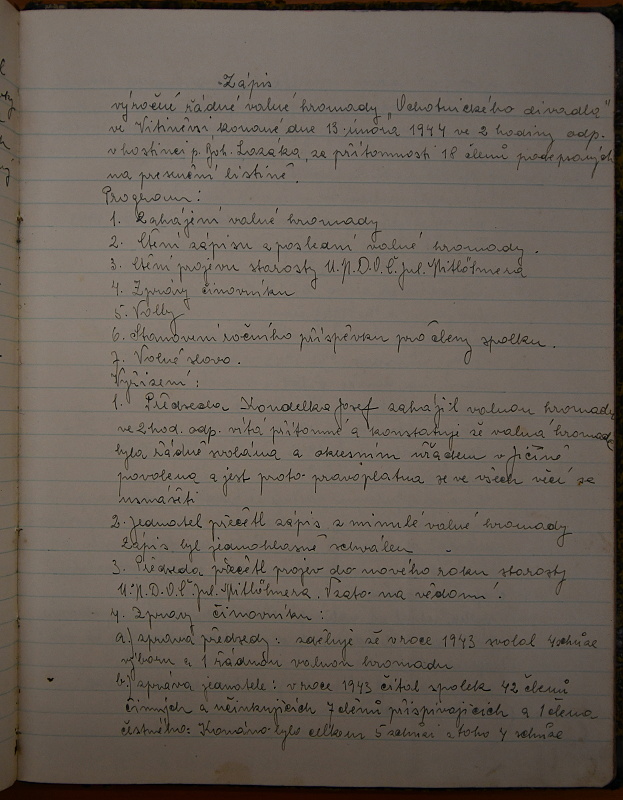 Zápis
výroční řádné valné hromady "Ochotnického divadla"
ve Vitiněvsi konané dne 13. února 1944 ve 2 hodiny odp.
v hostinci p. Boh. Lazaka, za přítomnosti 18 členů podepsaných
na presenční listině.
Program:
1. Zahájení valné hromady
2. Čtení zápisu z poslední valné hromady.
3. Čtení projevu starosty U.M.D.O.Č. Jul. Mitlöhnera
4. Zprávy činovníků
5. Volby
6. Stanovení ročního příspěvku pro členy spolku.
7. Volné slovo.
Vyřízení:
1. Předseda Kondelka Josef zahájil valnou hromadu
ve 2 hod. odp. vítá přítomné a konstatuje že valná hromada
byla řádně svolána a okresním úřadem v Jičíně
povolena a jest proto pravoplatna se ve všech věcí se
usnášeti
2. Jednatel přečetl zápis z minulé valné hromady
Zápis byl jednohlasně schválen
3. Předseda přečetl projev do nového roku starosty
U.M.D.O.Č. Jul. Mitlöhnera. Vzato na vědomí.
4. Zprávy činovníků:
a) zpráva předsedy: sděluje že v roce 1943 svolal 4 schůze
výboru a 1 řádnou valnou hromadu
b) zpráva jednatele: v roce 1943 čítal spolek 42 členů
činných a účinkujících 7 členů přispívajících a 1 člena
čestného: Konáno bylo celkem 5 schůzí z toho 4 schůze